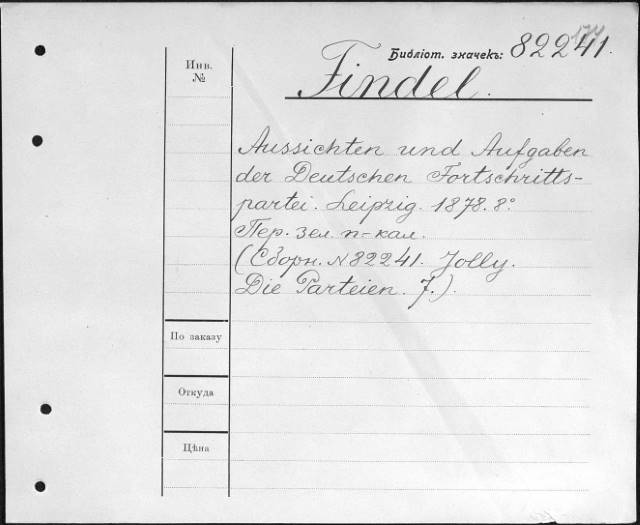 Инв.
№
Библіот. значекъ: 82241.
Findel.
Aussichten und Aufgaben
der Deutschen Fortschritts-
partei. Leipzig. 1878. 8°
Пер. зел. п-кал.
(Сборн. №82241. Jolly.
Die Parteien. 7.).
По заказу
Откуда
Цѣна